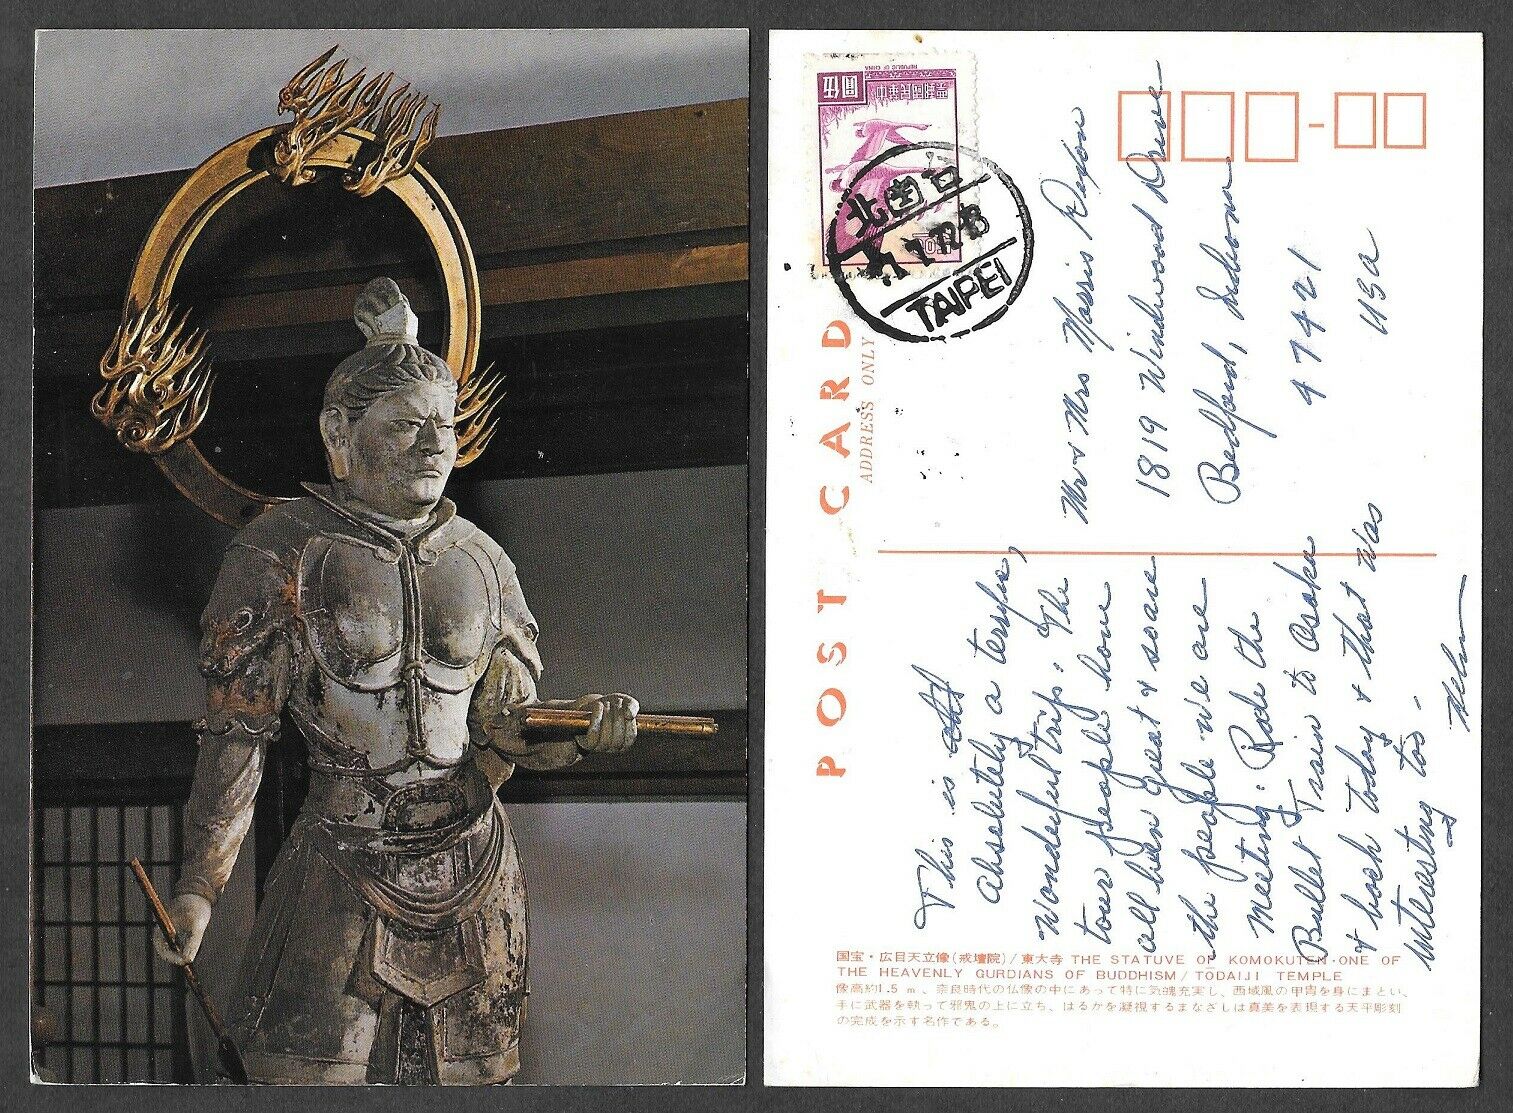 中華民國郵票
伍圓
REPUBLIC OF CHINA
台北
7.7.77.18
TAIPEI
POST CARD
ADDRESS ONLY
Mr & Mrs Morris
1819 Windwood Drive
Bedford, Indiana
47421
USA
This is
absolutely a terrific,
wonderful trip. The
tour people have
all been great & so are
the people we are
meeting. Rode the
Bullet Train to Osaka
& back today & that was
interesting too -
Helen
国宝・広目天立像(戒壇院)/東大寺 THE STATUVE OF KOMOKUTEN・ONE OF
THE HEAVENLY GURDIANS OF BUDDHISM/TODAIJI TEMPLE
像高約1.5m、奈良時代の仏像の中にあって特に気魄充実し、西域風の甲冑を身にまとい、
手に武器を執って邪鬼の上に立ち、はるかを凝視するまなざしは真美を表現する天平彫刻
の完成を示す名作である。